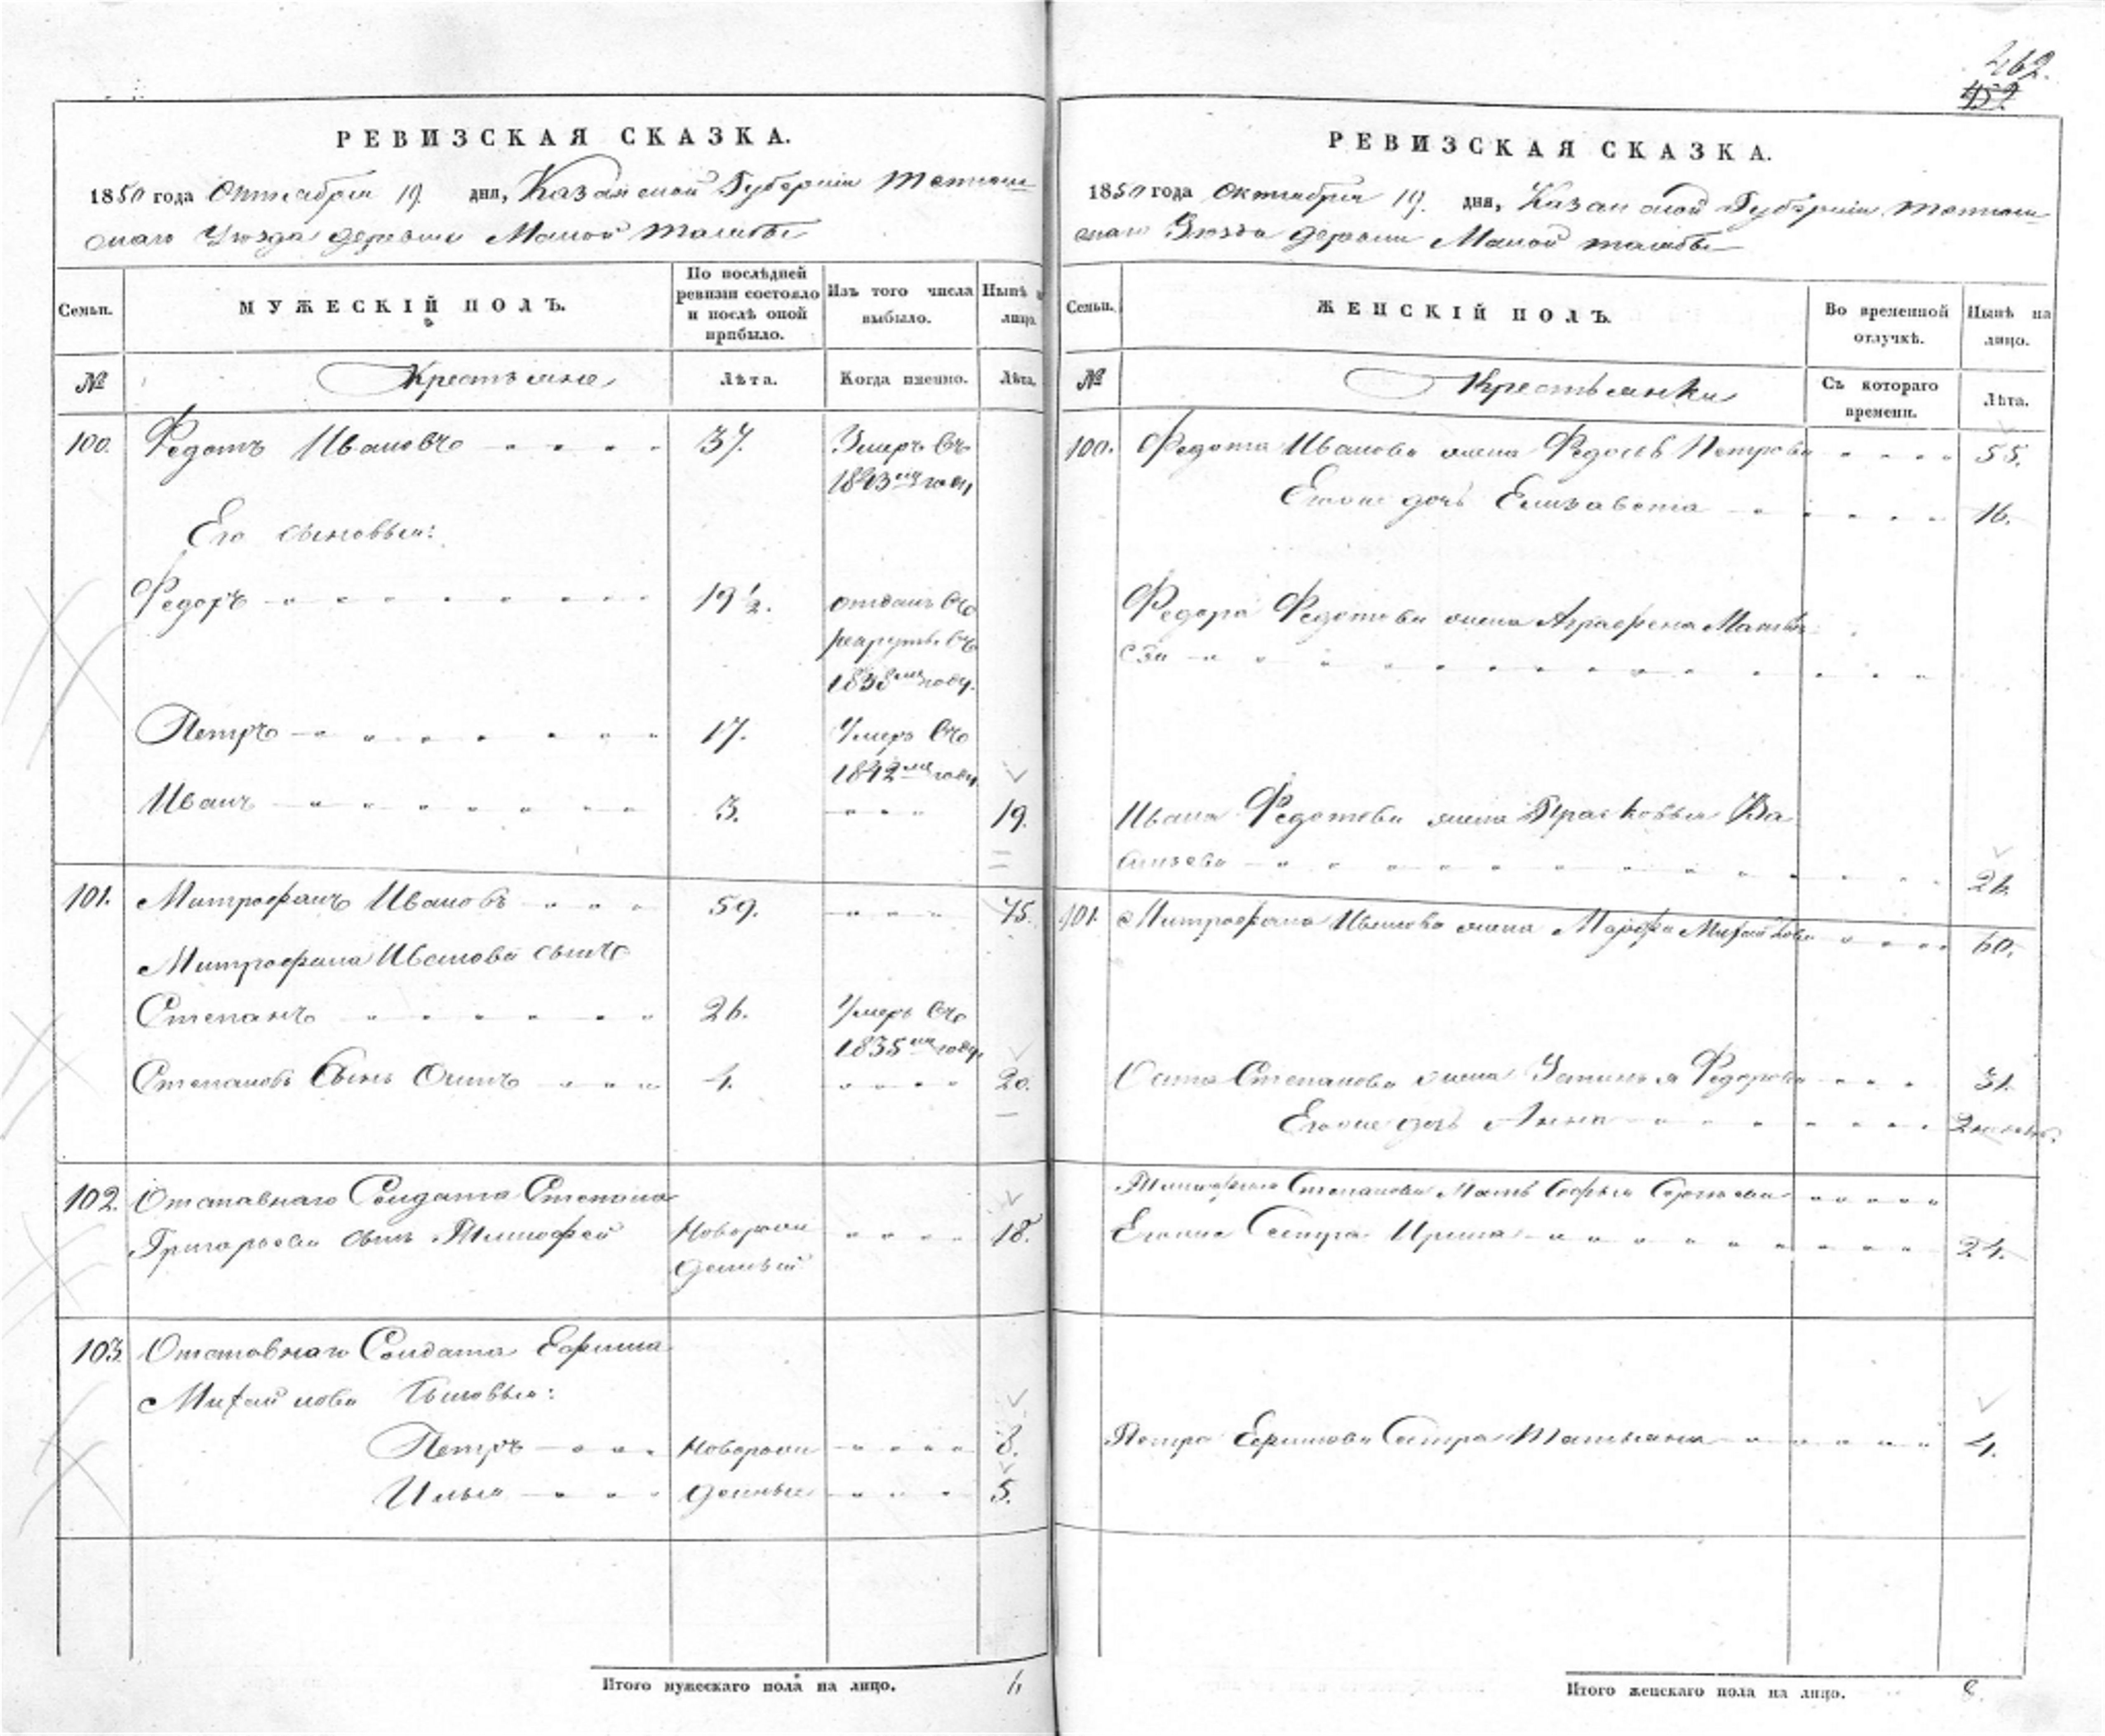 462.
452
РЕВИЗСКАЯ СКАЗКА.
1850 года Октября 19. дня, Казанской Губернии Тетюш
скаго Уезда деревни Малой
Семьи.
МУЖЕСКІЙ ПОЛЪ.
По послѣдней ревизіи состояло и послѣ оной прибыло.
Изъ того числа выбыло.
Нынѣ лицо.
№
Крестьяне
Лѣта.
Когда именно.
Лѣта.
100. Федотъ Ивановъ 37. Умеръ въ
1843мъ году
Его сыновья:
Федоръ 19 1/2. отданъ въ
рекруты въ
1838мъ году.
Петръ 17. Умеръ въ
1842мъ году
Иванъ 3. 19.
101. Митрофанъ Ивановъ 59. 75.
Митрофана Иванова сынъ
Степанъ 26. Умеръ въ
1835мъ году
Степановъ сынъ Осипъ 4. 20.
102. Отставнаго Солдата Степана
Григорьева сынъ Тимофей Новорож 18.
денный
103. Отставнаго Солдата Ефима
Михайлова Сыновья:
Петръ Новорож 8.
Илья денные 5.
Итого мужескаго пола на лицо. 6
РЕВИЗСКАЯ СКАЗКА.
1850 года Октября 19. дня, Казанской Губернии Тетюш
скаго Уезда деревни Малой
Семьи.
ЖЕНСКІЙ ПОЛЪ.
Во временной отлучкѣ.
Нынѣ на лицо.
№
Крестьянки
Съ котораго времени.
Лѣта.
100. Федота Иванова жена Федосья Петрова 55.
Егоже дочь Елизавета 16.
Федора Федотова жена Аграфена Матвѣ
ева
Ивана Федотова жена Прасковья Ва
сильева 21.
101. Митрофана Иванова жена Марфа Михайлова 60.
Осипа Степанова жена Устинья Федорова 31.
Егоже дочь Анна
Тимофея Степанова Мать Софья Сергѣева
Егоже Сестра Ирина 24.
Петра Ефимова Сестра Татьяна 4.
Итого женскаго пола на лицо. 8.